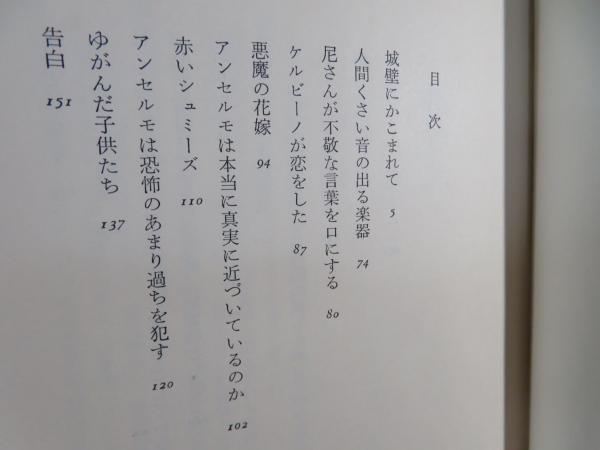 目次
城壁にかこまれて 5
人間くさい音の出る楽器 74
尼さんが不敬な言葉を口にする 80
ケルビーノが恋をした 87
悪魔の花嫁 94
アンセルモは本当に真実に近づいているのか 102
赤いシュミーズ 110
アンセルモは恐怖のあまり過ちを犯す 120
ゆがんだ子供たち 137
告白 151